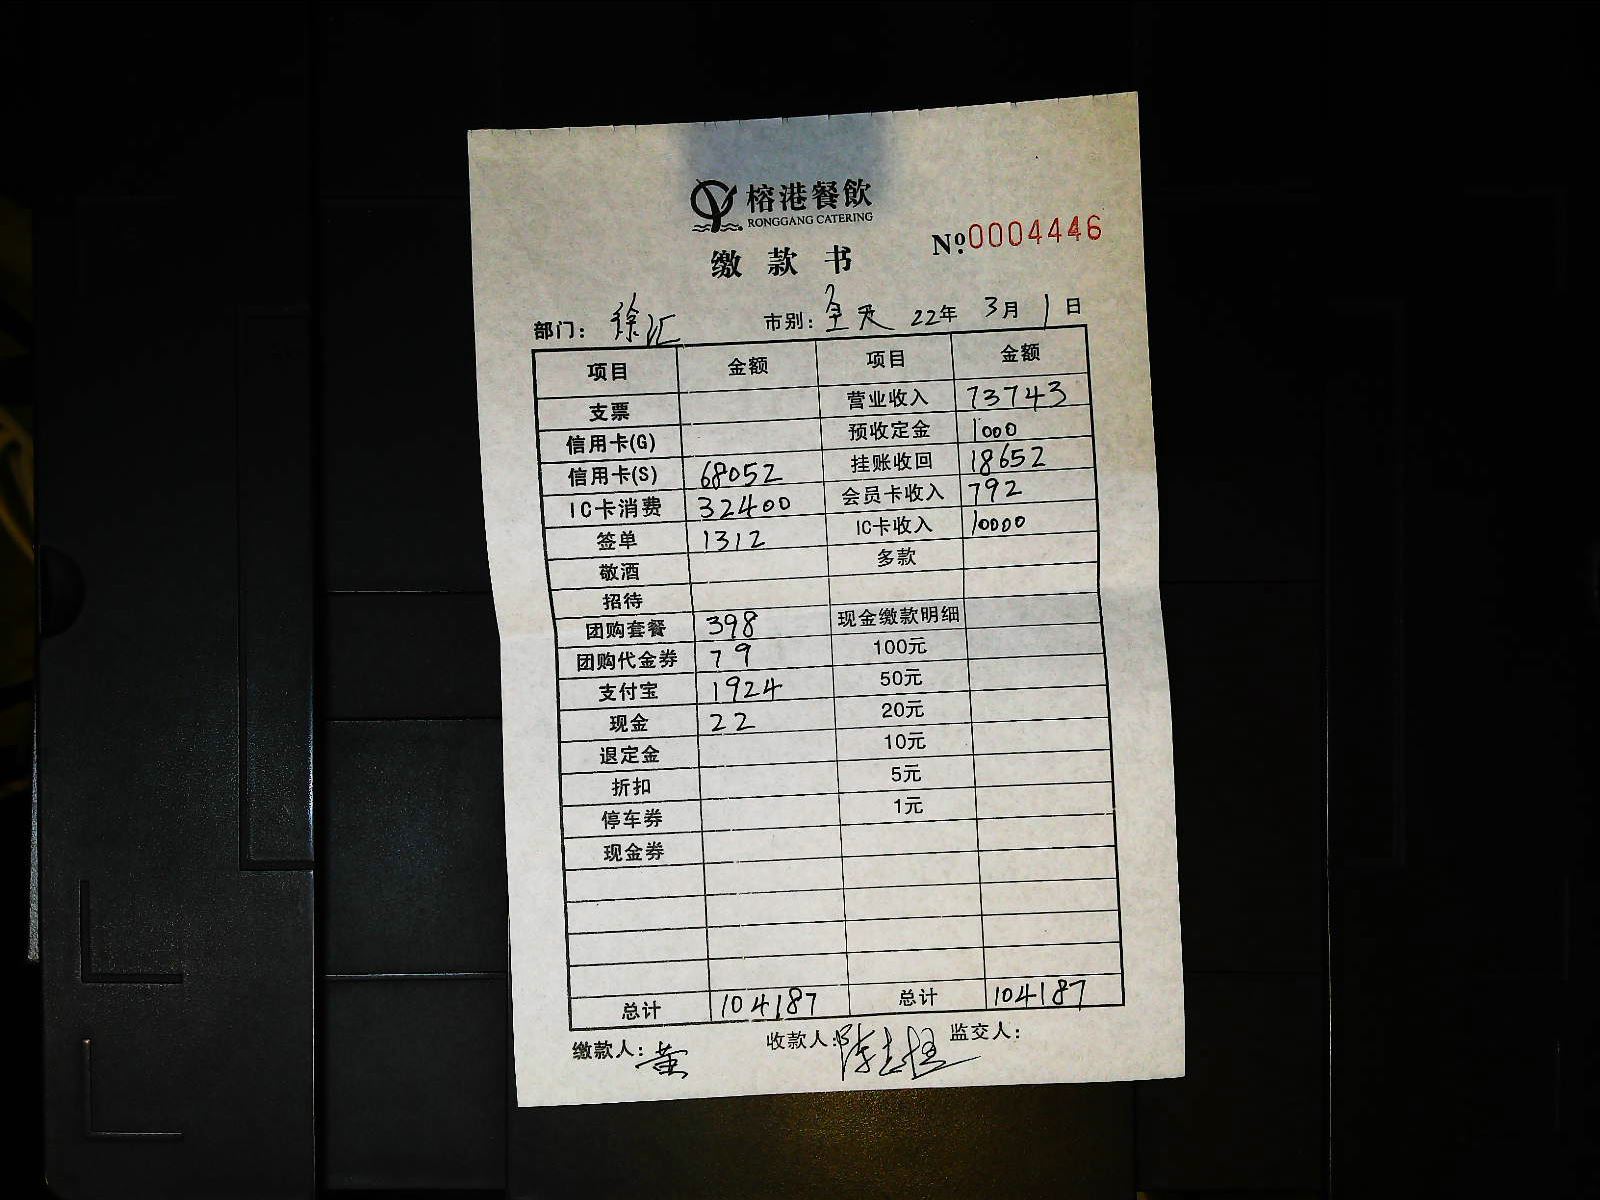 榕港餐飲
RONGGANG CATERING
缴款书
№0004446
部门：徐汇 市别：全天 22年 3月 1日
项目 金额 项目 金额
支票 营业收入 73743
信用卡(G) 预收定金 1000
信用卡(S) 68052 挂账收回 18652
IC卡消费 32400 会员卡收入 792
签单 1312 IC卡收入 10000
敬酒 多款
招待
团购套餐 398 现金缴款明细
团购代金券 79 100元
支付宝 1924 50元
现金 22 20元
退定金 10元
折扣 5元
停车券 1元
现金券
总计 104187 总计 104187
缴款人：黄 收款人： 监交人：